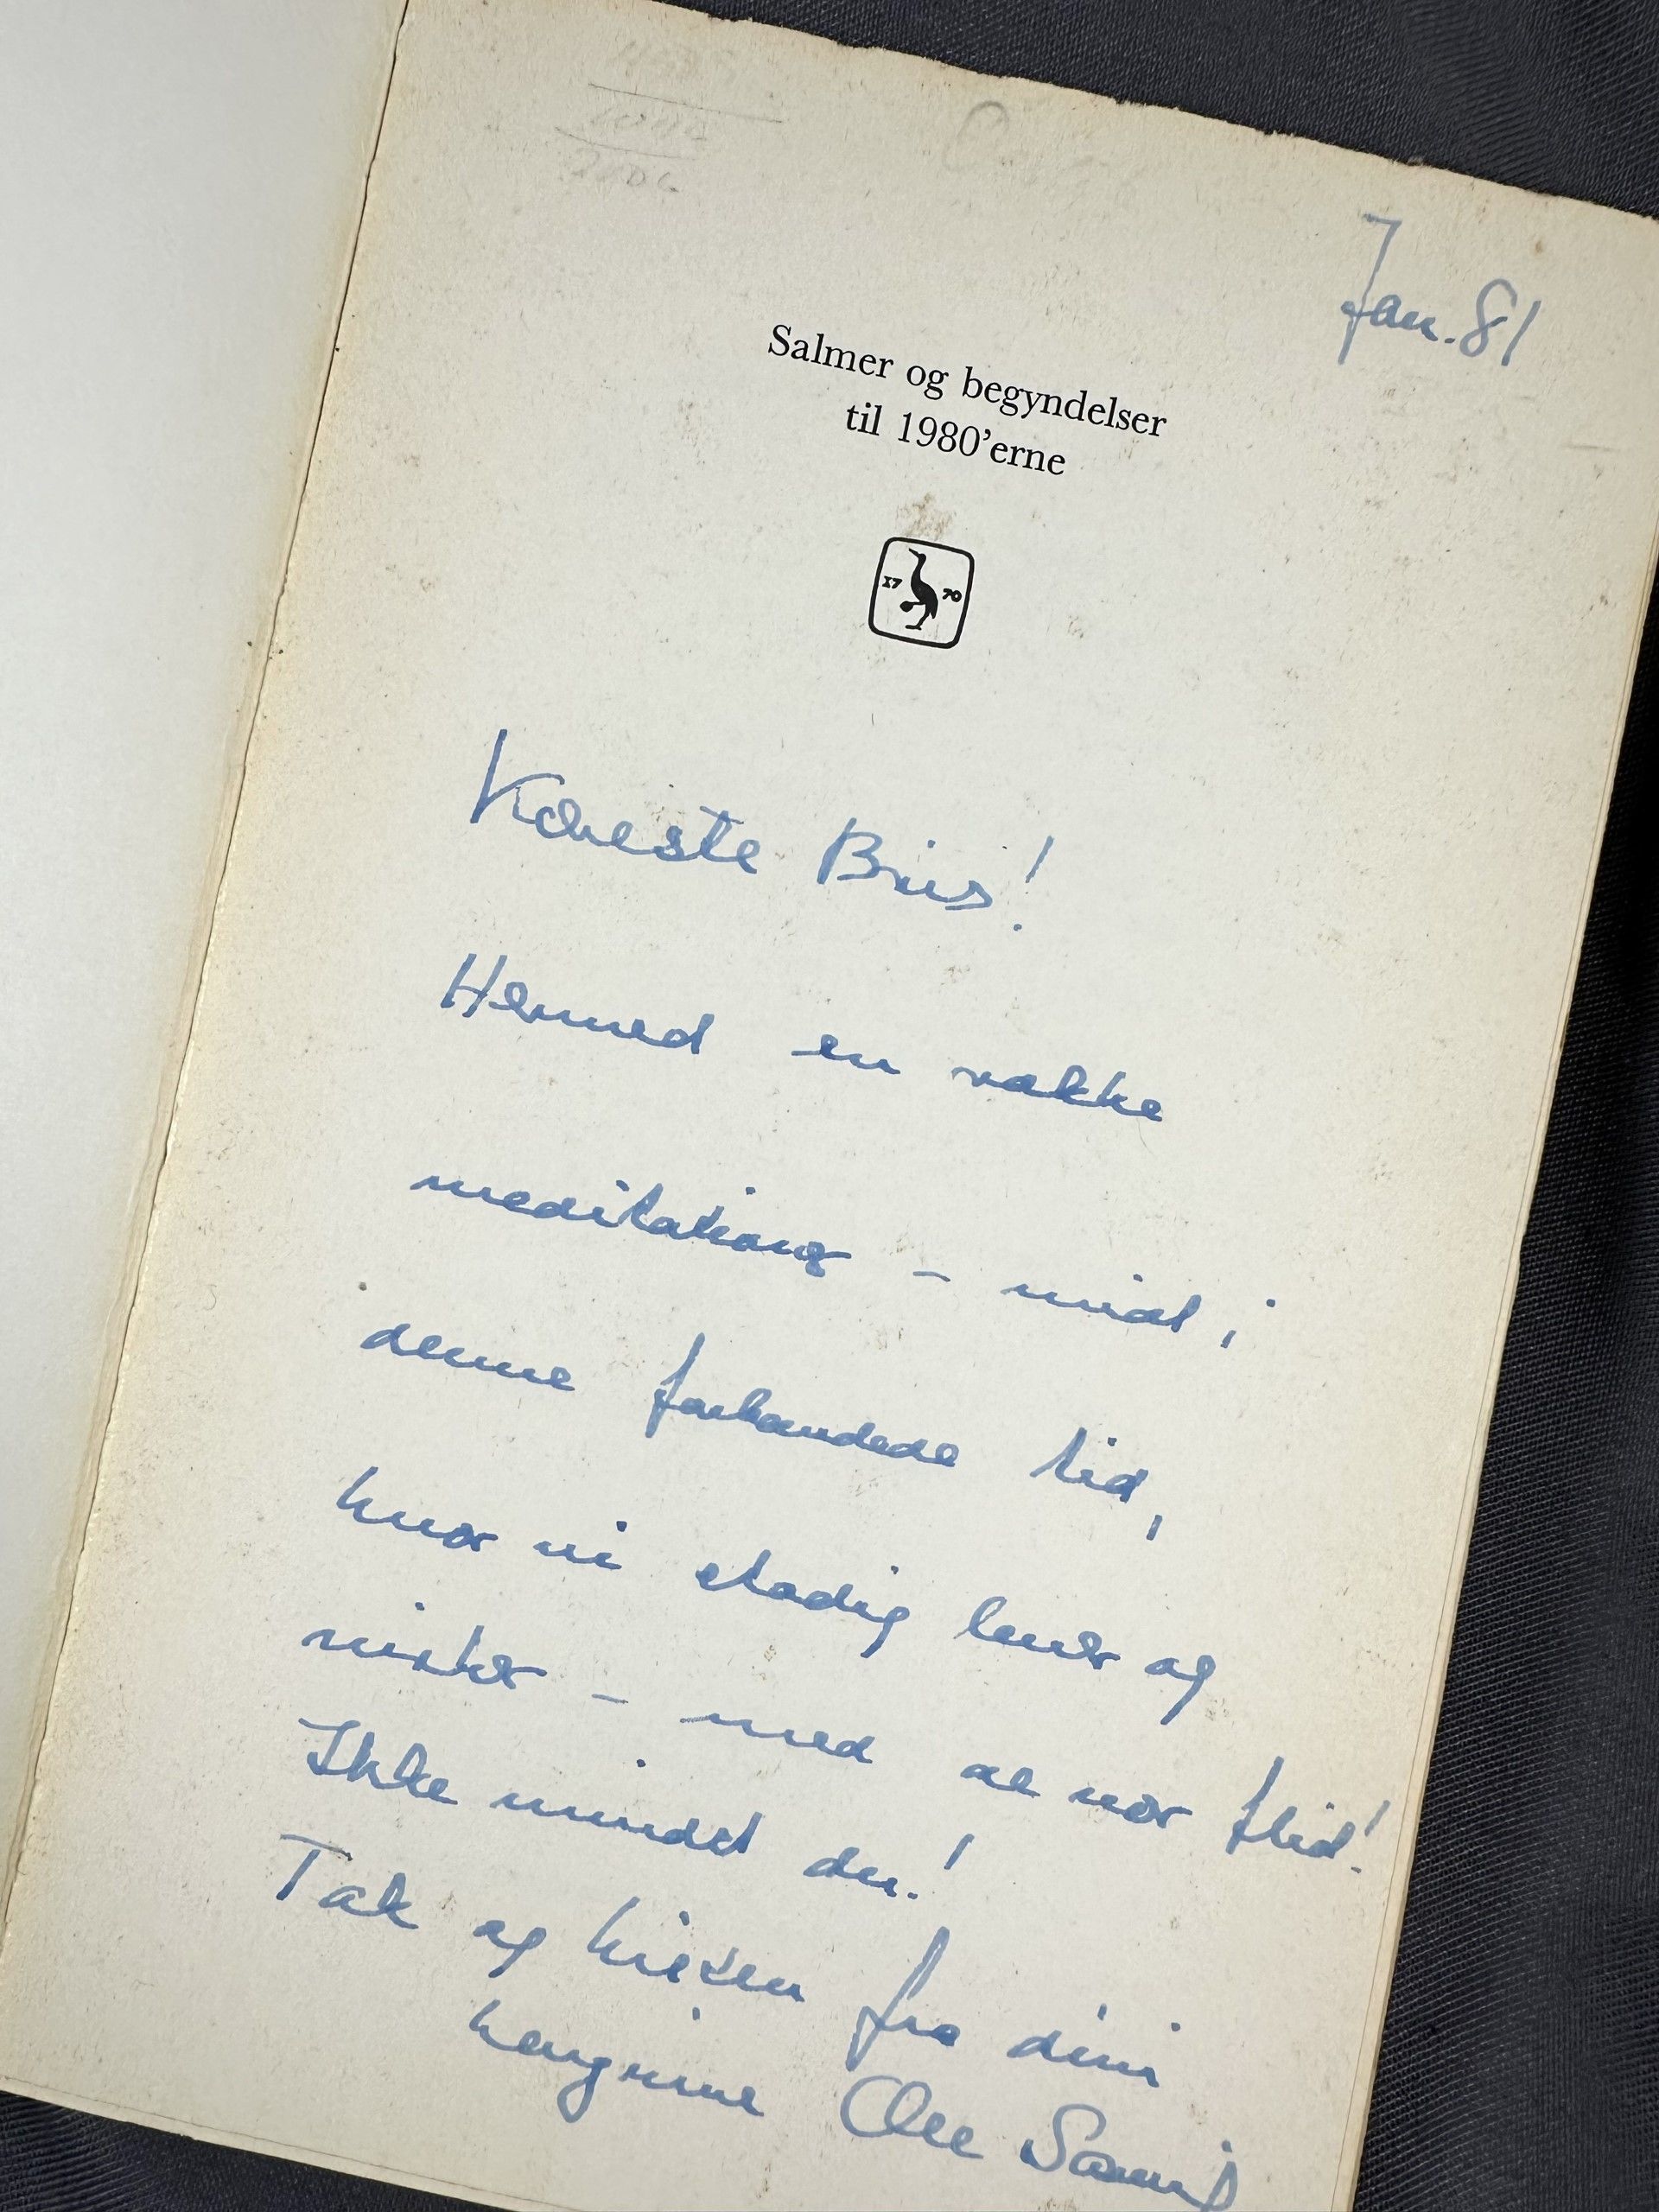 Jan. 81
Salmer og begyndelser
til 1980'erne
17 70
Kæreste
Hermed en række
meditationer – midt i
denne forbandede tid,
hvor vi stadig lever og
virker – med al vor flid!
Ikke mindst du!
Tak og hilsen fra din
hengivne Ole Sarvig